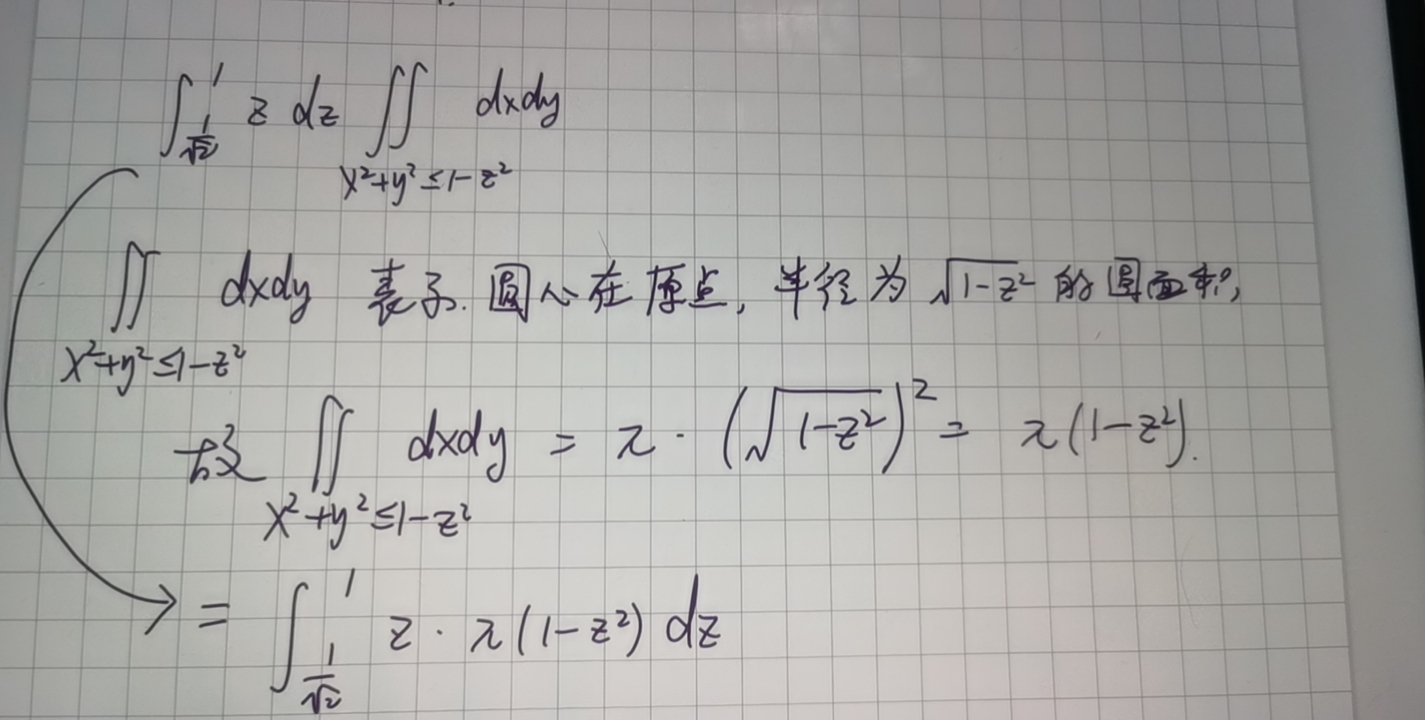 ∫_{1/√2}^{1} z dz ∬_{x²+y²≤1-z²} dxdy
∬_{x²+y²≤1-z²} dxdy 表示.圆心在原点,半径为 √(1-z²) 的圆面积,
故 ∬_{x²+y²≤1-z²} dxdy = π·(√(1-z²))² = π(1-z²).
= ∫_{1/√2}^{1} z·π(1-z²) dz